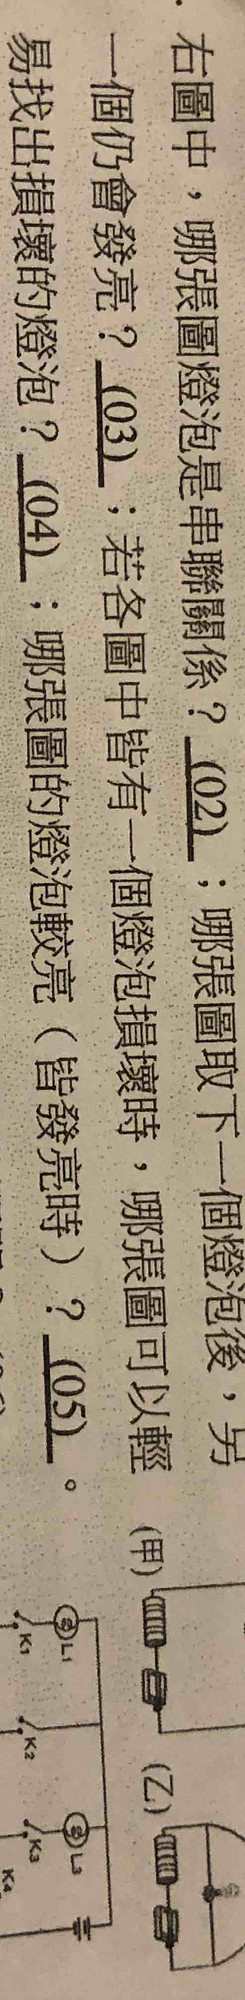 右圖中，哪張圖燈泡是串聯關係？ (02) ；哪張圖取下一個燈泡後，另
一個仍會發亮？ (03) ；若各圖中皆有一個燈泡損壞時，哪張圖可以輕
易找出損壞的燈泡？ (04) ；哪張圖的燈泡較亮（皆發亮時）？ (05) 。
(甲)
(乙)
L1
K1
K2
L2
K3
K4